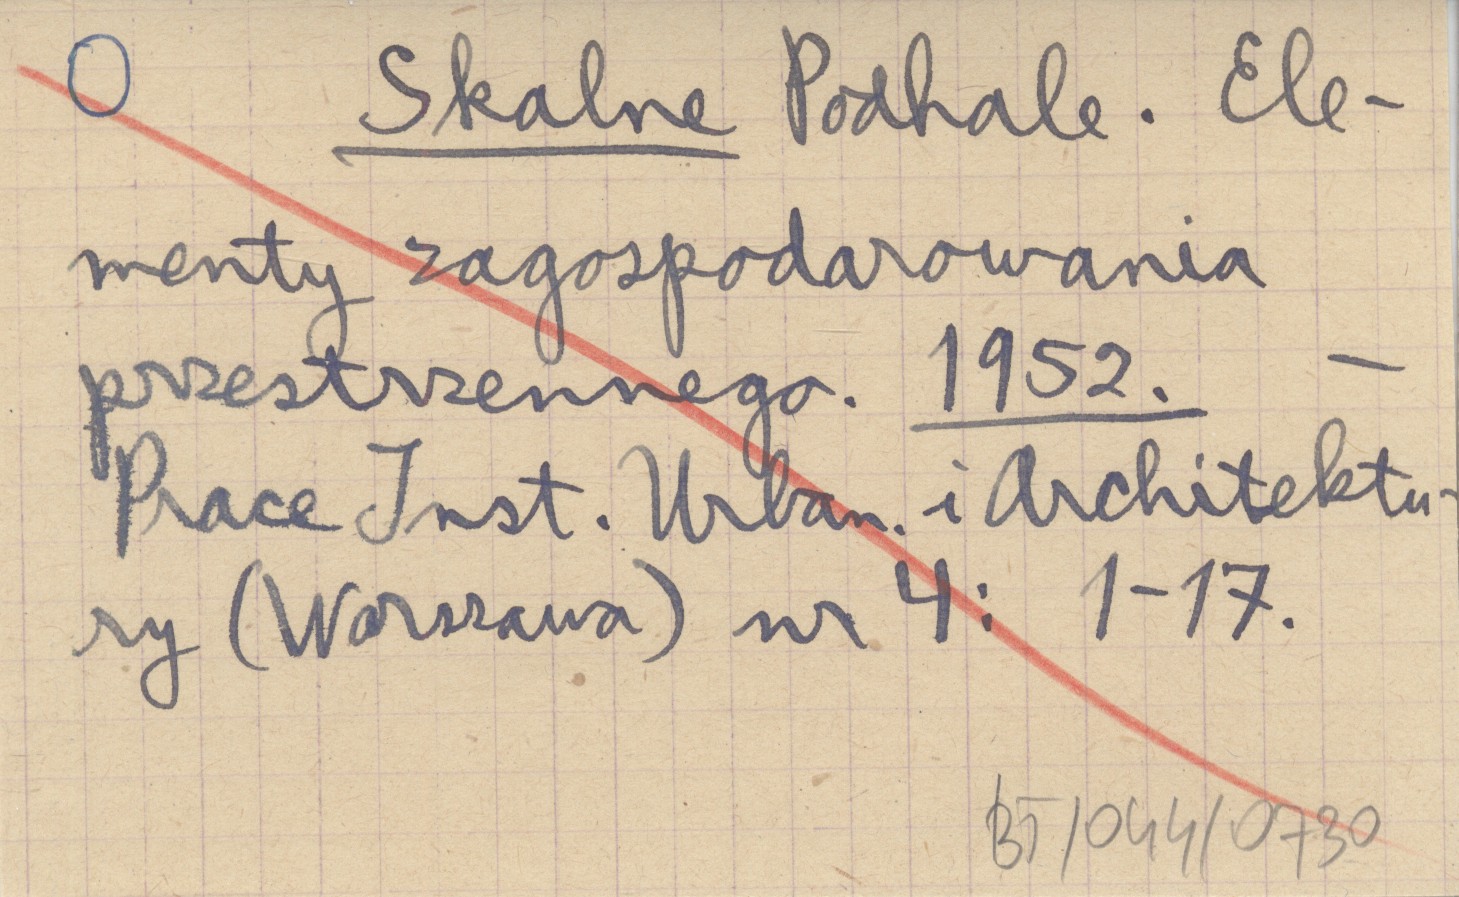 O Skalne Podhale. Ele-
menty zagospodarowania
przestrzennego. 1952. —
Prace Inst. Urban. i Architektu-
ry (Warszawa) nr 4: 1-17.
BT/044/0730